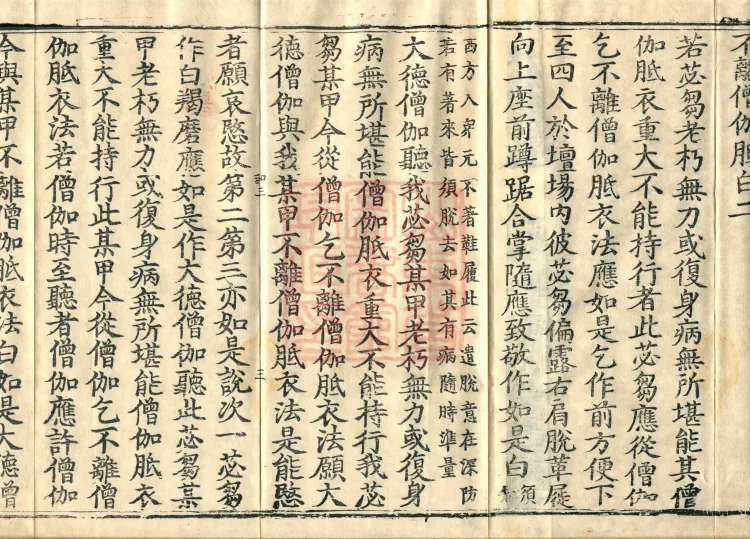 不離僧伽胝白二
若苾芻老朽無力或復身病無所堪能其僧
伽胝衣重大不能持行者此苾芻應從僧伽
乞不離僧伽胝衣法應如是乞作前方便下
至四人於壇場內彼苾芻偏露右肩脫革屣
向上座前蹲踞合掌隨應致敬作如是白須
西方入眾元不著鞋履此云遣脫意在深防
若有著來皆須脫去如其有病隨時准量
大德僧伽聽我苾芻某甲老朽無力或復身
病無所堪能僧伽胝衣重大不能持行我苾
芻某甲今從僧伽乞不離僧伽胝衣法願大
德僧伽與我某甲不離僧伽胝衣法是能愍
者願哀愍故第二第三亦如是說次一苾芻
作白羯磨應如是作大德僧伽聽此苾芻某
甲老朽無力或復身病無所堪能僧伽胝衣
重大不能持行此某甲今從僧伽乞不離僧
伽胝衣法若僧伽時至聽者僧伽應許僧伽
今與某甲不離僧伽胝衣法白如是大德僧